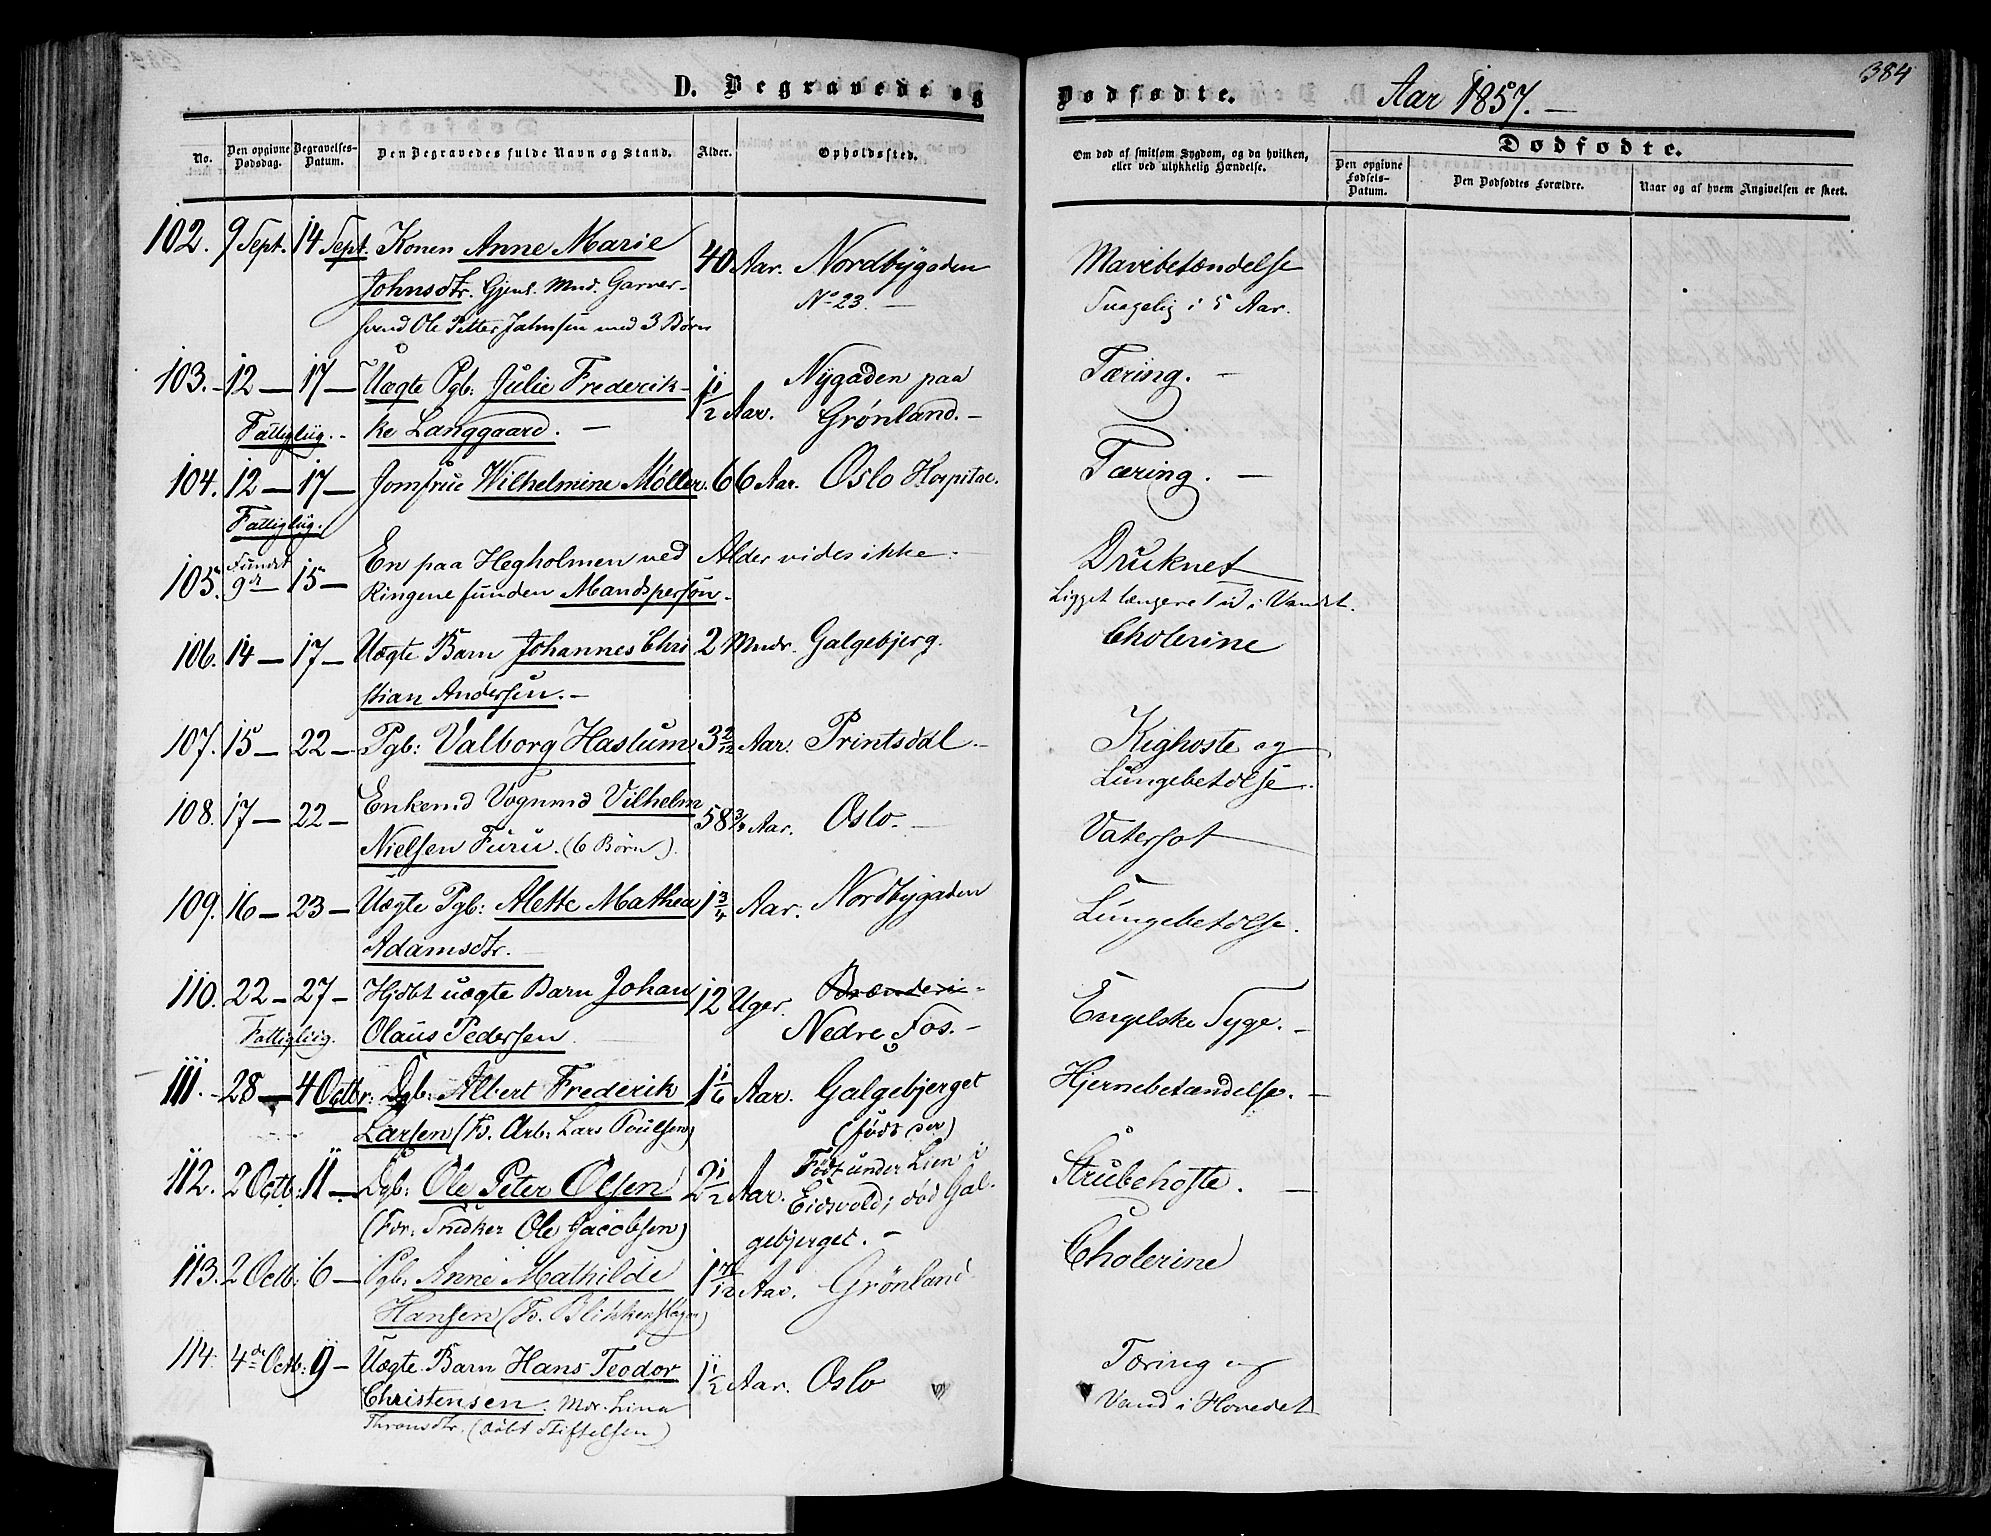 384
D. Begravede og Dødfødte. Aar 1857.—
No.
Den opgivne Dødsdag.
Begravelses-Datum.
Den Begravedes fulde Navn og Stand.
Alder.
Opholdssted.
Om død af smitsom Sygdom, og da hvilken, eller ved ulykkelig Hændelse.
Dødfødte.
Den opgivne Fødsels-Datum.
Den Dødfødtes Forældre.
Naar og af hvem Angivelsen er skeet.
102. 9 Sept. 14 Sept. Konen Anne Marie 40 Aar. Nordbygaden Mavebetændelse
Johnsdtr. Gjenl. Mnd. Garver- No 23.— Svagelig i 5 Aar.
svend Ole Petter Jahnsen med 3 Børn
103.– 12 — 17 — Uægte Pgb: Julie Frederik- 1 1/2 Aar. Nygaden paa Tæring. –
Fattiglig.– ke Langgaard. — Grønland.–
104. 12 — 17 — Jomfrue Wilhelmine Møller. 66 Aar. Oslo Hospital. Tæring. —
Fattiglig.
105. Fundet 9de 15 — En paa Hegholmen ved Alder vides ikke. Druknet
Ringene funden Mandsperson. Ligget længere Tid i Vandet.
106. 14 — 17 — Uægte Barn Johannes Chri 2 Mndr. Galgebjerg. Cholerine
stian Andersen.–
107. 15 — 22 — Pgb: Valborg Haslum 3 2/12 Aar. Printsdal.– Kighoste og
Lungebetdlse.
108. 17 — 22 — Enkemd Vognmd Vilhelm 58 3/4 Aar. Oslo.— Vatersot
Nielsen Furu. (6 Børn).
109. 16 — 23 — Uægte Pgb: Alette Mathea 1 3/4 Aar. Nordbygaden Lungebetdlse.
Adamsdtr.
110. 22 — 27 — Hjdbt uægte Barn Johan 12 Uger. Brænderi- Engelske Syge.–
Fattiglig. Olaus Pedersen Nedre Fos.–
111.– 28 — 4 Octbr: Dgb: Albert Frederik 1 1/6 Aar. Galgebjerget Hjernebetændelse.–
Larsen (F. Arb: Lars Poulsen) (født der)
112. 2 Octb: 11 — Dgb: Ole Peter Olsen 2 1/2 Aar. Født under Lien i Strubehoste.—
(For: Snedker Ole Jacobsen) Eidsvold; død Gal-
gebjerget.–
113. 2 Octb: 6 — Pgb: Anne Mathilde 1 7/12 Aar. Grønland Cholerine
Hansen (F. Blikkenslager)
114. 4de Octb: 9 — Uægte Barn Hans Teodor 1 1/2 Aar. Oslo Tæring og
Christensen. Mdr. Lina Vand i Hovedet
Thronsdtr. (døbt Stiftelsen)